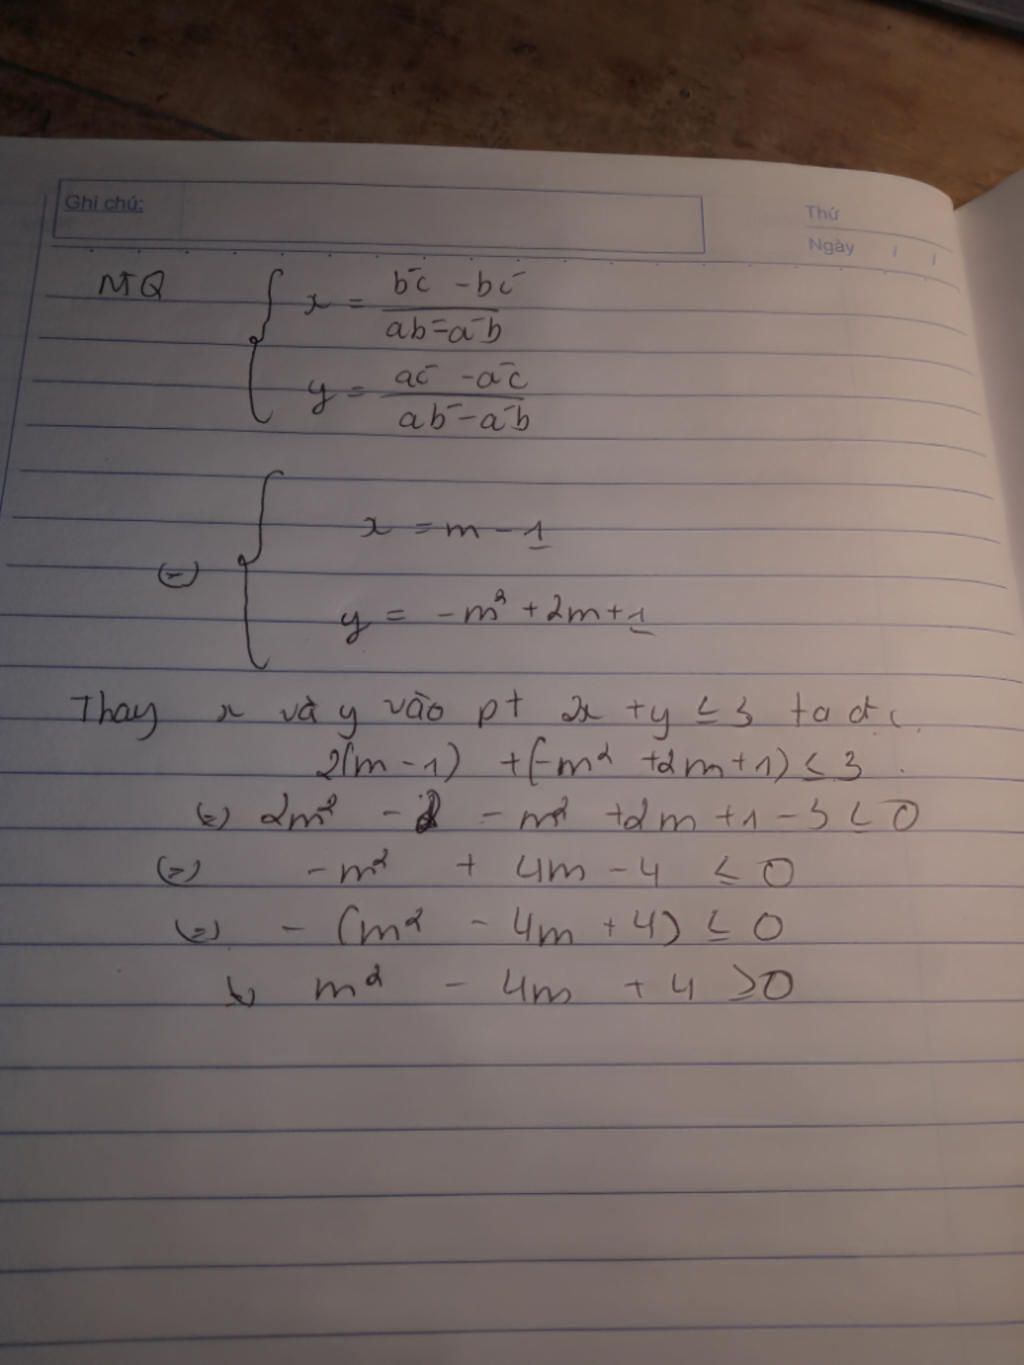 Ghi chú:
Thứ
Ngày / /
NTQ { x = (b⁻c - bc⁻) / (ab⁻ - a⁻b)
y = (ac⁻ - a⁻c) / (ab⁻ - a⁻b)
(=) { x = m - 1
y = -m² + 2m + 1
Thay x và y vào pt 2x + y ≤ 3 ta đc
2(m - 1) + (-m² + 2m + 1) ≤ 3
(=) 2m² - 2 - m² + 2m + 1 - 3 ≤ 0
(=) -m² + 4m - 4 ≤ 0
(=) - (m² - 4m + 4) ≤ 0
(=) m² - 4m + 4 ≥ 0